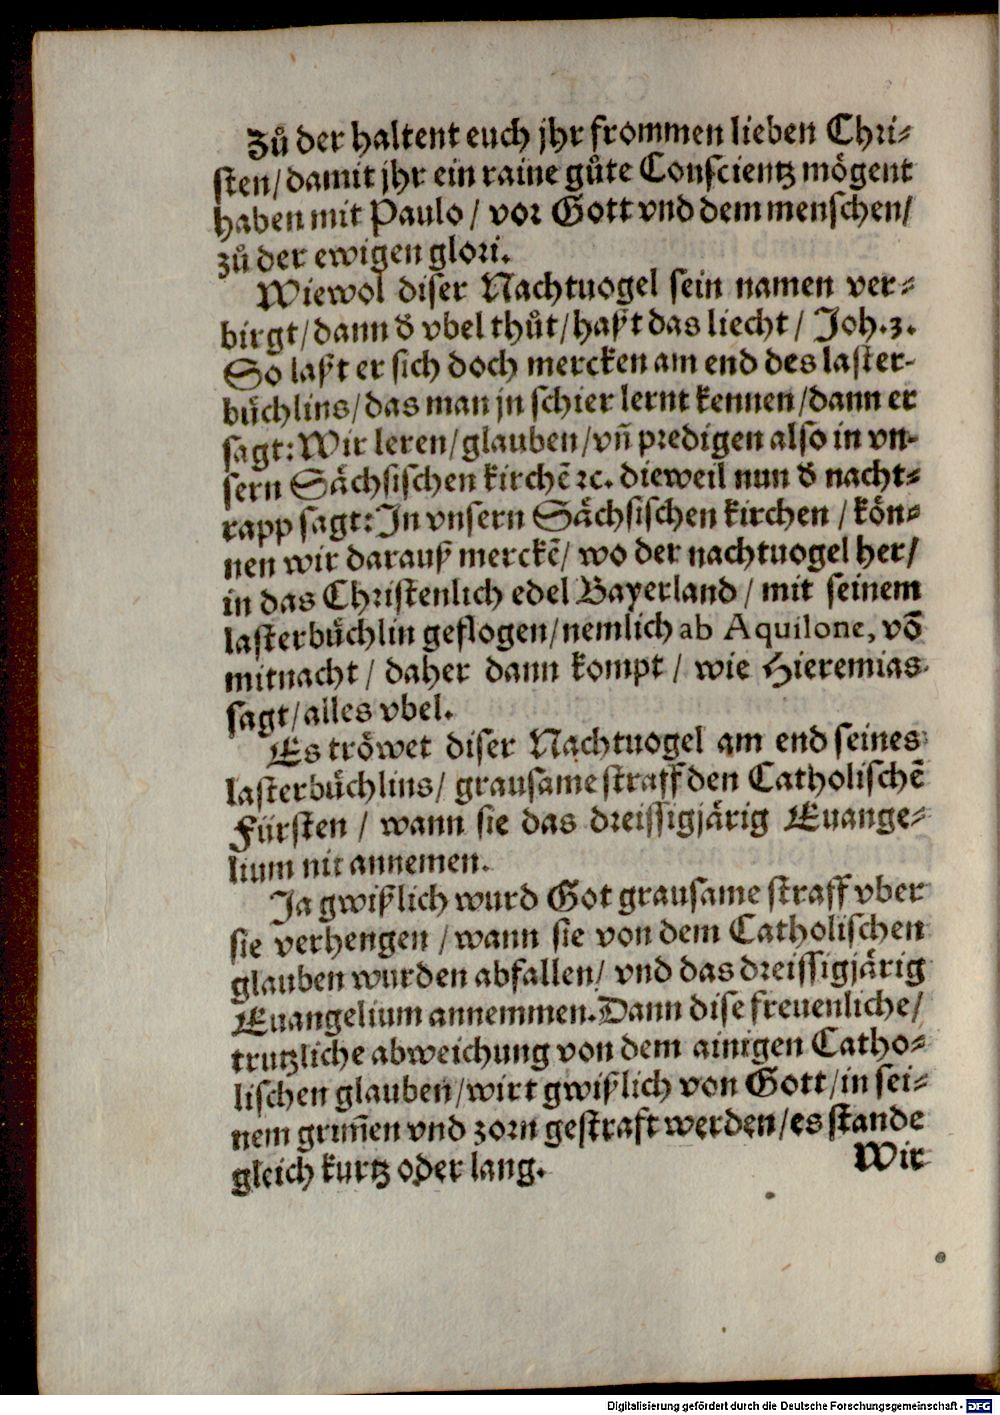 Zů der haltent euch jhr frommen lieben Chri-
sten/ damit jhr ein raine gůte Conscientz mögent
haben mit Paulo / vor Gott vnd dem menschen/
zů der ewigen glori.
Wiewol diser Nachtuogel sein namen ver-
birgt/ dann ð vbel thůt/ haßt das liecht/ Joh.3.
So laßt er sich doch mercken am end des laster-
büchlins/ das man jn schier lernt kennen/ dann er
sagt: Wir leren/ glauben/ vñ predigen also in vn-
sern Sächsischen kirchẽ ꝛc. dieweil nun ð nacht-
rapp sagt: In vnsern Sächsischen kirchen / kön-
nen wir darauß merckẽ/ wo der nachtuogel her/
in das Christenlich edel Bayerland / mit seinem
lasterbüchlin geflogen/ nemlich ab Aquilone, võ
mitnacht / daher dann kompt / wie Hieremias
sagt/ alles vbel.
Es tröwet diser Nachtuogel am end seines
lasterbüchlins/ grausame straff den Catholischẽ
Fürsten / wann sie das dreissigjärig Euange-
lium nit annemen.
Ja gwißlich wurd Got grausame straff vber
sie verhengen / wann sie von dem Catholischen
glauben wurden abfallen/ vnd das dreissigjärig
Euangelium annemmen. Dann dise freuenliche/
trutzliche abweichung von dem ainigen Catho-
lischen glauben/ wirt gwißlich von Gott/ in sei-
nem grim̃en vnd zorn gestraft werden/ es stande
gleich kurtz oder lang.
Wir
Digitalisierung gefördert durch die Deutsche Forschungsgemeinschaft - DFG